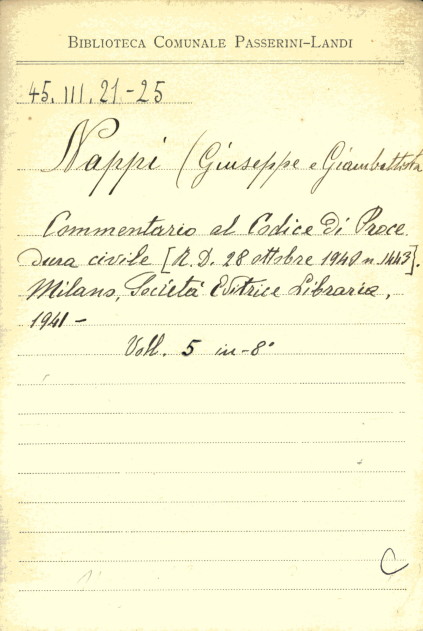 BIBLIOTECA COMUNALE PASSERINI-LANDI
45. III. 21-25
Nappi (Giuseppe e Giambattista
Commentario al Codice di Proce
dura civile [R. D. 28 ottobre 1940 n. 1443].
Milano, Società Editrice Libraria,
1941 -
Voll. 5 in-8°
C